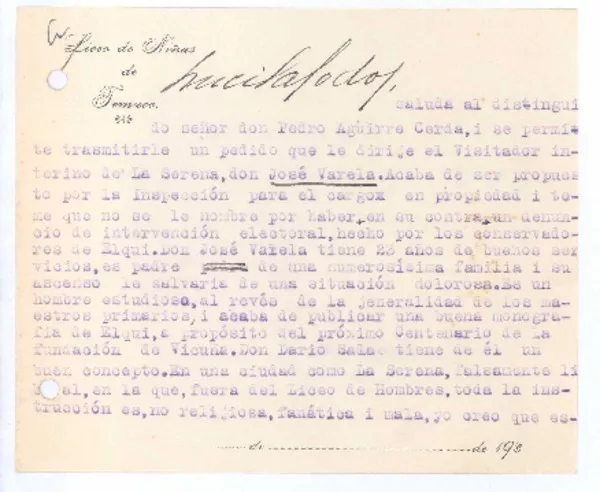 Liceo de Niñas
de
Temuco.
saluda al distingui
do señor don Pedro Aguirre Cerda, i se permit
te trasmitirle un pedido que le dirije el Visitador in-
terino de La Serena, don José Varela. Acaba de ser propues
to por la Inspección para el cargox en propiedad i te-
me que no se le nombre por haber, en su contra, un denun-
cio de intervención electoral, hecho por los conservado-
res de Elqui. Don José Varela tiene 23 años de buenos ser
vicios, es padre de una numerosísima familia i su
ascenso le salvaria de una situación dolorosa. Es un
hombre estudioso, al revés de la jeneralidad de los ma-
estros primarios, i acaba de publicar una buena monogra-
fia de Elqui, a propósito del próximo Centenario de la
fundación de Vicuna. Don Dario Salas tiene de él un
buen concepto. En una ciudad como La Serena, falsamente li
al, en la que, fuera del Liceo de Hombres, toda la ins-
trucción es, no relijiosa, fanática i mala, yo creo que es-
de de 192